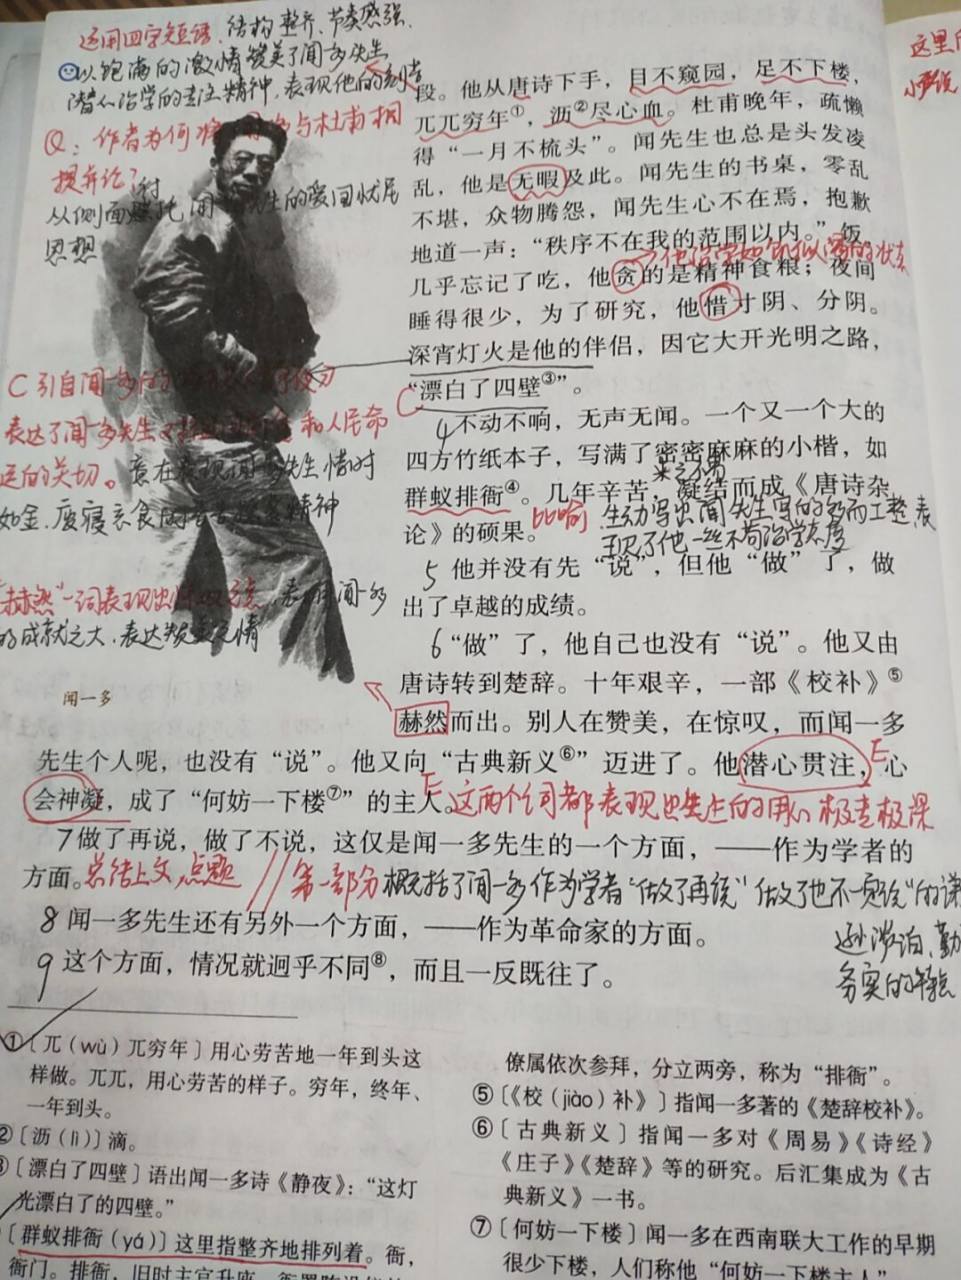 运用四字短语，结构整齐、节奏感强，
以饱满的激情赞美了闻一多先生
潜心治学的专注精神，表现他的刻苦
Q：作者为何将 与杜甫相
提并论？
从侧面衬托闻 先生的爱国忧民
思想
段。他从唐诗下手，目不窥园，足不下楼，
兀兀穷年①，沥②尽心血。杜甫晚年，疏懒
得“一月不梳头”。闻先生也总是头发凌
乱，他是无暇及此。闻先生的书桌，零乱
不堪，众物腾怨，闻先生心不在焉，抱歉
地道一声：“秩序不在我的范围以内。”饭
几乎忘记了吃，他贪的是精神食粮；夜间
睡得很少，为了研究，他惜寸阴、分阴。
深宵灯火是他的伴侣，因它大开光明之路，
“漂白了四壁③”。
C 引自闻一多的
表达了闻一多先生 和人民命
运的关切。意在表现闻一多先生惜时
如金，废寝忘食的 精神
4 不动不响，无声无闻。一个又一个大的
四方竹纸本子，写满了密密麻麻的小楷，如
群蚁排衙④。几年辛苦，凝结而成《唐诗杂
来之不易
论》的硕果。
比喻 生动写出闻先生写的 而工整，表
现了他一丝不苟治学态度
5 他并没有先“说”，但他“做”了，做
出了卓越的成绩。
“赫然”一词表现出 ，表明闻一多
的成就之大，表达 之情
6 “做”了，他自己也没有“说”。他又由
唐诗转到楚辞。十年艰辛，一部《校补》⑤
闻一多
赫然而出。别人在赞美，在惊叹，而闻一多
先生个人呢，也没有“说”。他又向“古典新义⑥”迈进了。他潜心贯注，心
会神凝，成了“何妨一下楼⑦”的主人。
这两个词都表现出先生的用心极专极深
7 做了再说，做了不说，这仅是闻一多先生的一个方面，——作为学者的
方面。
总结上文，点题 // 第一部分 概括了闻一多作为学者“做了再说”“做了也不一定说”的谦
逊淡泊、勤
务实的
8 闻一多先生还有另外一个方面，——作为革命家的方面。
9 这个方面，情况就迥乎不同⑧，而且一反既往了。
这里
①〔兀（wù）兀穷年〕用心劳苦地一年到头这
样做。兀兀，用心劳苦的样子。穷年，终年、
一年到头。
②〔沥（lì）〕滴。
③〔漂白了四壁〕语出闻一多诗《静夜》：“这灯
光漂白了的四壁。”
〔群蚁排衙（yá）〕这里指整齐地排列着。衙，
衙门。排衙，旧时主官升座，衙署陈设仪仗
僚属依次参拜，分立两旁，称为“排衙”。
⑤〔《校（jiào）补》〕指闻一多著的《楚辞校补》。
⑥〔古典新义〕指闻一多对《周易》《诗经》
《庄子》《楚辞》等的研究。后汇集成为《古
典新义》一书。
⑦〔何妨一下楼〕闻一多在西南联大工作的早期
很少下楼，人们称他“何妨一下楼主人”